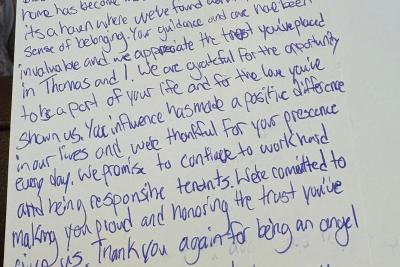 home has become
its a haven where we've found
sense of belonging. Your guidance and care have been
invaluable and we appreciate the trust you've placed
in Thomas and I. We are grateful for the opportunity
to be a part of your life and for the love you've
shown us. Your influence has made a positive difference
in our lives and we're thankful for your prescence
every day. We promise to continue to work hard
and being responsible tenants. We're committed to
making you proud and honoring the trust you've
us. Thank you again for being an angel